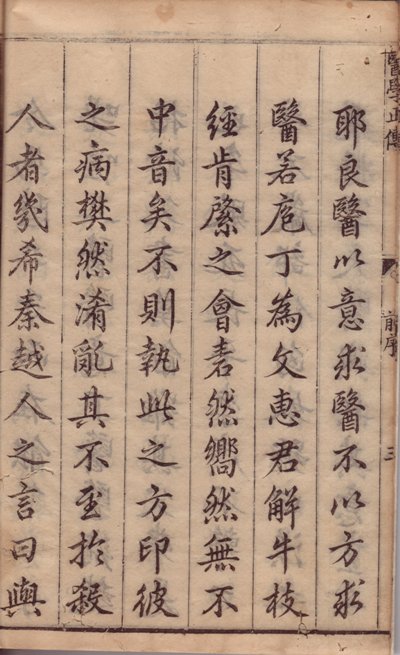 醫學正傳
前序
三
耶良醫以意求醫不以方求
醫若庖丁為文惠君解牛枝
經肯綮之會砉然嚮然無不
中音矣不則執此之方印彼
之病樊然淆亂其不至於殺
人者幾希秦越人之言曰輿